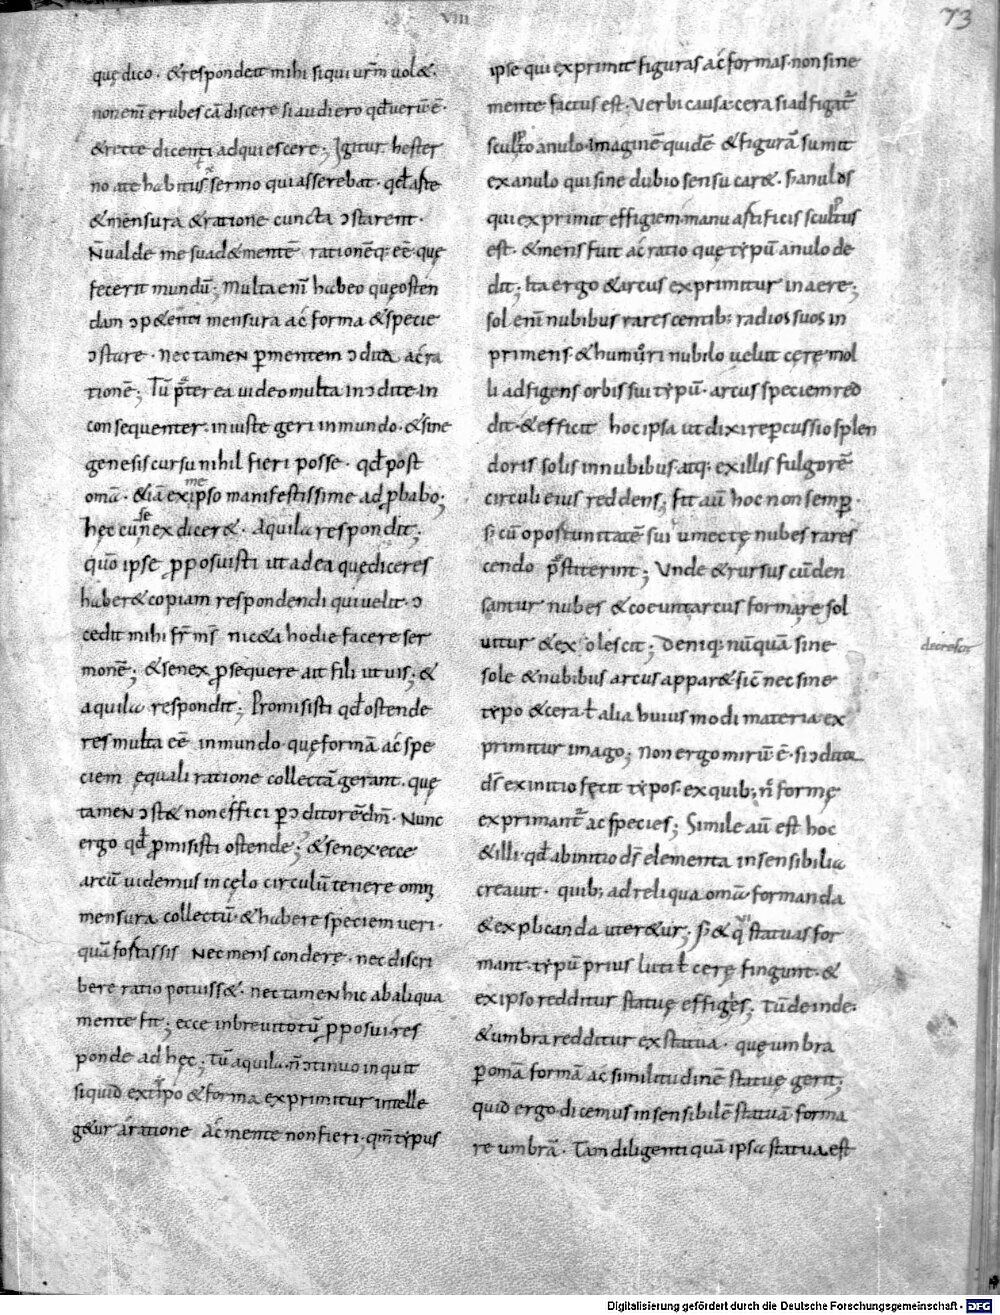 VIII
73
quę dico. &respondeat mihi siqui urm̄ uol&.
non enī erubescā discere si audiero qđ uerū ē.
&recte dicenti adquiescere; Igitur hester
no a te habitus sermo qui asserebat. qđ arte
&mensura &ratione cuncta ɔstarent.
N̄ ualde me suad& mentē rationēq: eē quę
fecerit mundū; Multa enī habeo quę osten
dam ɔp&enti mensura ac forma &specie
ɔstare. nec tamen p̄ mentem ɔdita ac ra
tionē; Tū p̄terea uideo multa inɔdite in
consequenter. iniuste geri in mundo. &sine
genesis cursu nihil fieri posse. qđ post
omā. &iā ex me ipso manifestissime adp̄babo;
hęc cū senex dicer&. aquila respondit;
quō ipse p̄posuisti ut ad ea quę diceres
haber& copiam respondendi qui uelit. ɔ
cedit mihi fr̄ ms̄ nic&a hodie facere ser
monē; &senex p̄sequere ait fili ut uis; &
aquila respondit; Promisisti qđ ostende
res multa eē in mundo. quę formā ac spe
ciem ęquali ratione collectā gerant. quę
tamen ɔst& non effici p̄ ɔditorē dm̄. Nunc
ergo qđ p̄misisti ostende; &senex. ecce
arcū uidemus in cęlo circulū tenere omi
mensura collectū. &habere speciem ueri.
quā fortassis nec mens condere. nec discri
bere ratio potuiss&. nec tamen hic ab aliqua
mente fit; ecce in breui totū p̄posui res
ponde ad hęc; Tū aquila. n̄ ɔtinuo inquit
siquid ex tipo &forma exprimitur intelle
g&ur a ratione ac mente non fieri. qm̄ typus
ipse qui exprimit figuras ac formas. non sine
mente factus est. Verbi causa. cera si adfigat̄
sculpto anulo. imaginē quidē &figurā sumit
ex anulo qui sine dubio sensu car&. s; anulus
qui exprimit effigiem. manu artificis sculptus
est. &mens fuit ac ratio quę typū anulo de
dit; Ita ergo &arcus exprimitur in aere;
sol enī nubibus rarescentib; radios suos in
primens. &humori nubilo uelut cerę mol
li adfigens orbis sui typū. arcus speciem red
dit. &efficit hoc ipsa ut dixi repercussio splen
doris solis in nubibus. atq: ex illis fulgorē
circuli eius reddens; fit aū hoc non semp̄.
s; cū oportunitatē sui umectę nubes rares
cendo p̄stiterint; Vnde &rursus cū den
santur nubes &coeunt. arcus formare sol
uitur &exolescit; Deniq: nūquā sine
sole &nubibus arcus appar& sic̄ nec sine
typo &cera ł alia huiusmodi materia ex
primitur imago; non ergo mirū ē. si ɔditor
ds̄ ex initio fecit typos. ex quib; n̄ formę
exprimant̄ ac species; Simile aū est hoc
&illi. qđ ab initio ds̄ elementa insensibilia
creauit. quib; ad reliqua omā formanda
&explicanda uter&ur; S; &qui statuas for
mant. typū prius luti ł cerę fingunt. &
ex ipso redditur statuę effigies; tū deinde.
&umbra redditur ex statua. quę umbra
p̄ omā formā ac similitudinē statuę gerit;
quid ergo dicemus insensibilē statuā forma
re umbrā. Tam diligenti quā ipsa statua est
decrescit
Digitalisierung gefördert durch die Deutsche Forschungsgemeinschaft - DFG